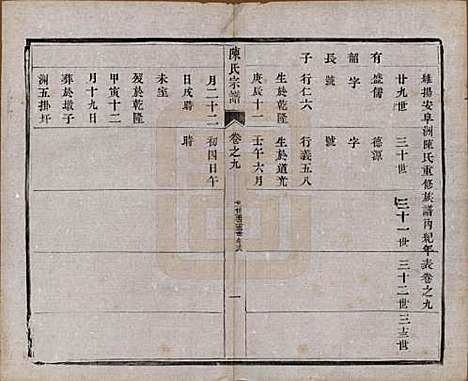 維揚安阜洲陳氏重修族譜內紀年表卷之九
廿九世 三十世 三十一世 三十二世 三十三世
有盛儒 德源
韶字 字
長號 號
子行仁六 行義五八
生於乾隆 生於道光
庚辰十一 壬午六月
陳氏宗譜 卷之九 一
月二十二 初四日午
日戌時 時
未室
歿於乾隆
甲寅十二
月十九日
葬於墩子
洲五掛圩